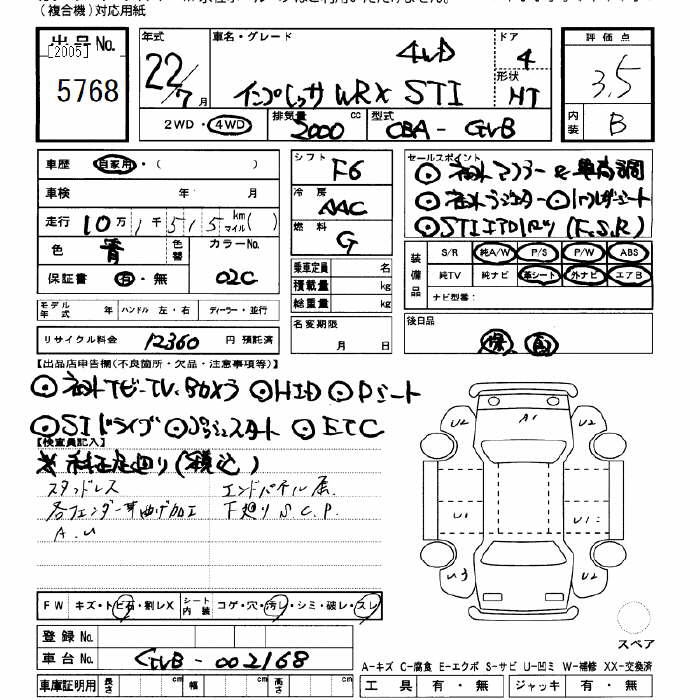 (複合機)対応用紙
出品No.
[2005]
5768
年式
22/7月
車名・グレード
4WD
インプレッサ WRX STI
ドア
4
形状
HT
評価点
3.5
内装
B
2WD・4WD
排気量
2000 cc
型式
CBA-GVB
車歴 自家用・( )
車検 年 月
走行 10万1千515 km マイル( )
色 青 色替 カラーNo. 02C
保証書 有・無
シフト
F6
冷房
AAC
燃料
G
セールスポイント
装備品
S/R 純A/W P/S P/W ABS
純TV 純ナビ 革シート 外ナビ エアB
ナビ型番:
乗車定員 名
積載量 kg
総重量 kg
モデル年式 年 ハンドル 左・右 ディーラー・並行
名変期限
月 日
後日品
リサイクル料金 12360 円 預託済
【出品店申告欄(不良箇所・欠品・注意事項等)】
HID Dシート
SIドライブ プッシュスタート ETC
【検査員記入】
スタッドレス
エンドパネル
各フェンダー耳曲げ加工
下廻り S.C.P.
A.U
A1
U2 U2
U1 U1
U3 U2
FW キズ・トビ石・割レX シート内装 コゲ・穴・汚レ・シミ・破レ・スレ
スペア
登録No.
車台No. GVB-002168
A-キズ C-腐食 E-エクボ S-サビ U-凹ミ W-補修 XX-交換済
車庫証明用 長さ cm 幅 cm 高さ cm
工具 有・無 ジャッキ 有・無